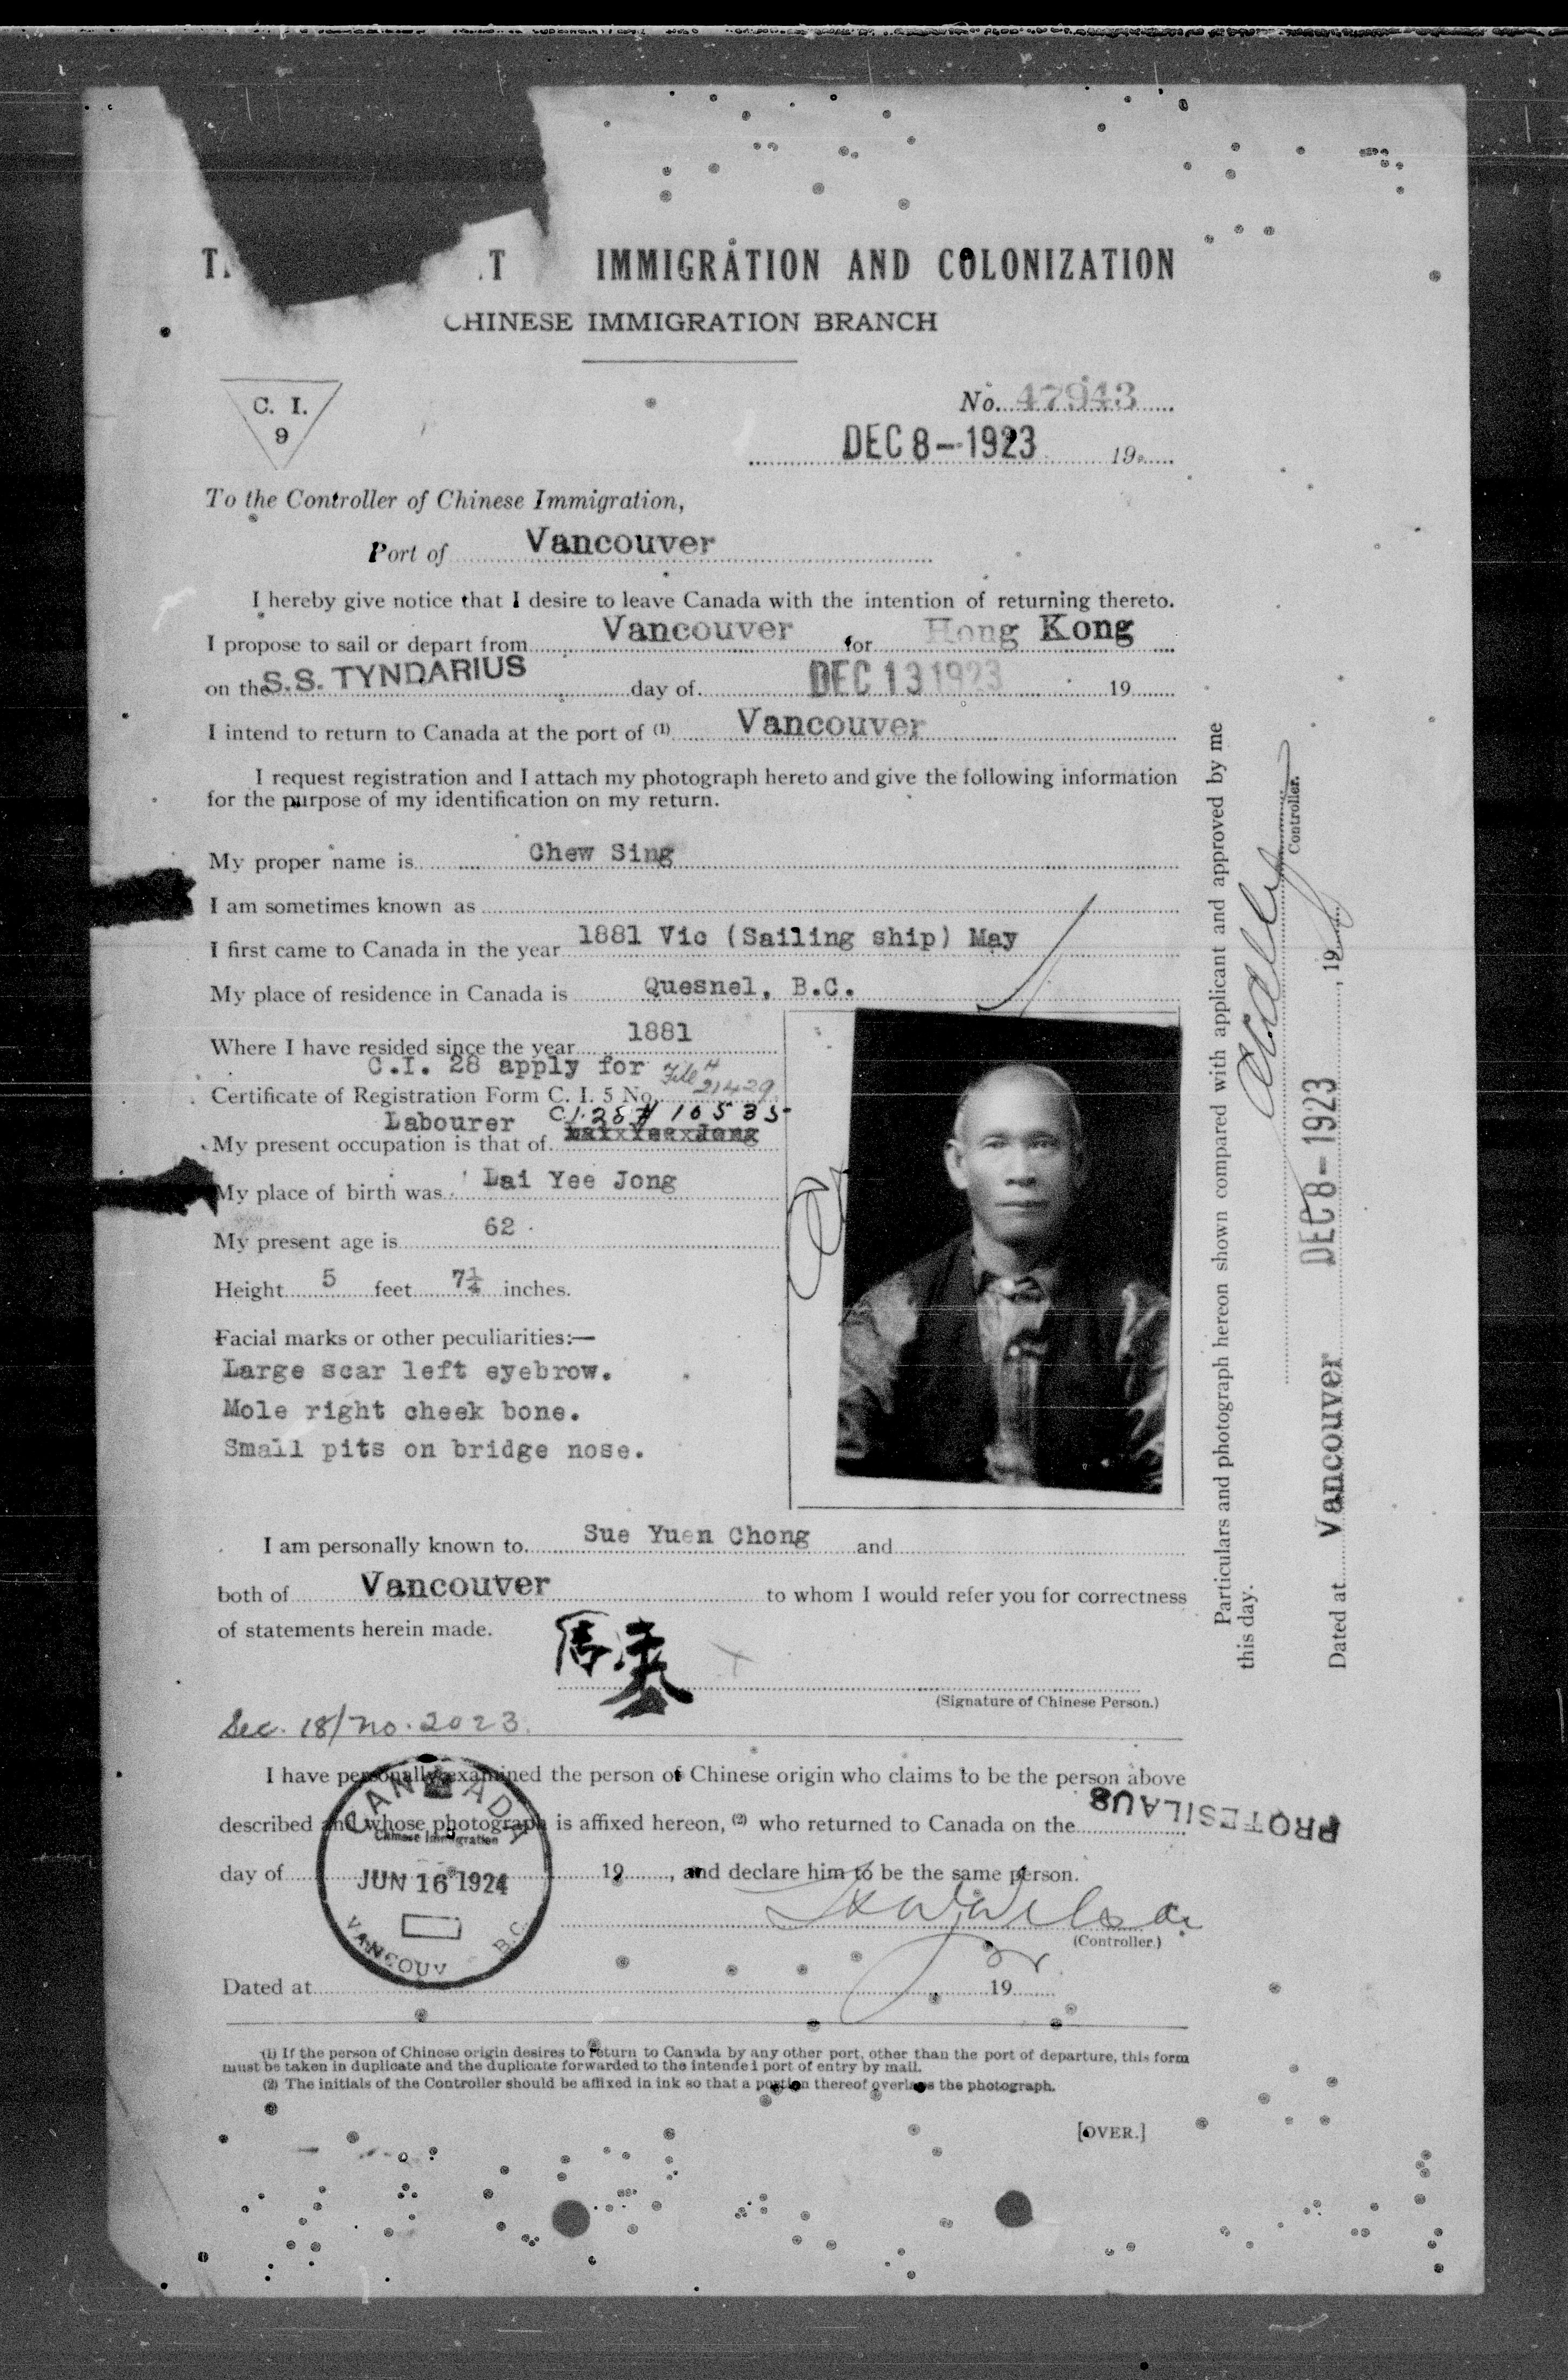 IMMIGRATION AND COLONIZATION
CHINESE IMMIGRATION BRANCH
C. I.
9
No. 47943
DEC 8-1923 19
To the Controller of Chinese Immigration,
Port of Vancouver
I hereby give notice that I desire to leave Canada with the intention of returning thereto.
I propose to sail or depart from Vancouver for Hong Kong
on the S.S. TYNDARIUS day of DEC 13 1923 19
I intend to return to Canada at the port of (1) Vancouver
I request registration and I attach my photograph hereto and give the following information
for the purpose of my identification on my return.
My proper name is Chew Sing
I am sometimes known as
I first came to Canada in the year 1881 Vic (Sailing ship) May
My place of residence in Canada is Quesnel, B.C.
Where I have resided since the year 1881
C.I. 28 apply for File # 21429
Certificate of Registration Form C. I. 5 No.
Labourer C.I.28 # 10535
My present occupation is that of
My place of birth was Lai Yee Jong
My present age is 62
Height 5 feet 7¼ inches.
Facial marks or other peculiarities:—
Large scar left eyebrow.
Mole right cheek bone.
Small pits on bridge nose.
I am personally known to Sue Yuen Chong and
both of Vancouver to whom I would refer you for correctness
of statements herein made.
(Signature of Chinese Person.)
Sec. 18/no. 2023.
I have personally examined the person of Chinese origin who claims to be the person above
described and whose photograph is affixed hereon, (2) who returned to Canada on the
PROTESILAUS
day of 19 , and declare him to be the same person.
CANADA
Chinese Immigration
JUN 16 1924
VANCOUV B.C.
(Controller.)
Dated at 19
(1) If the person of Chinese origin desires to return to Canada by any other port, other than the port of departure, this form
must be taken in duplicate and the duplicate forwarded to the intended port of entry by mail.
(2) The initials of the Controller should be affixed in ink so that a portion thereof overlaps the photograph.
[OVER.]
Particulars and photograph hereon shown compared with applicant and approved by me
this day.
Controller.
Dated at Vancouver DEC 8-1923 , 19